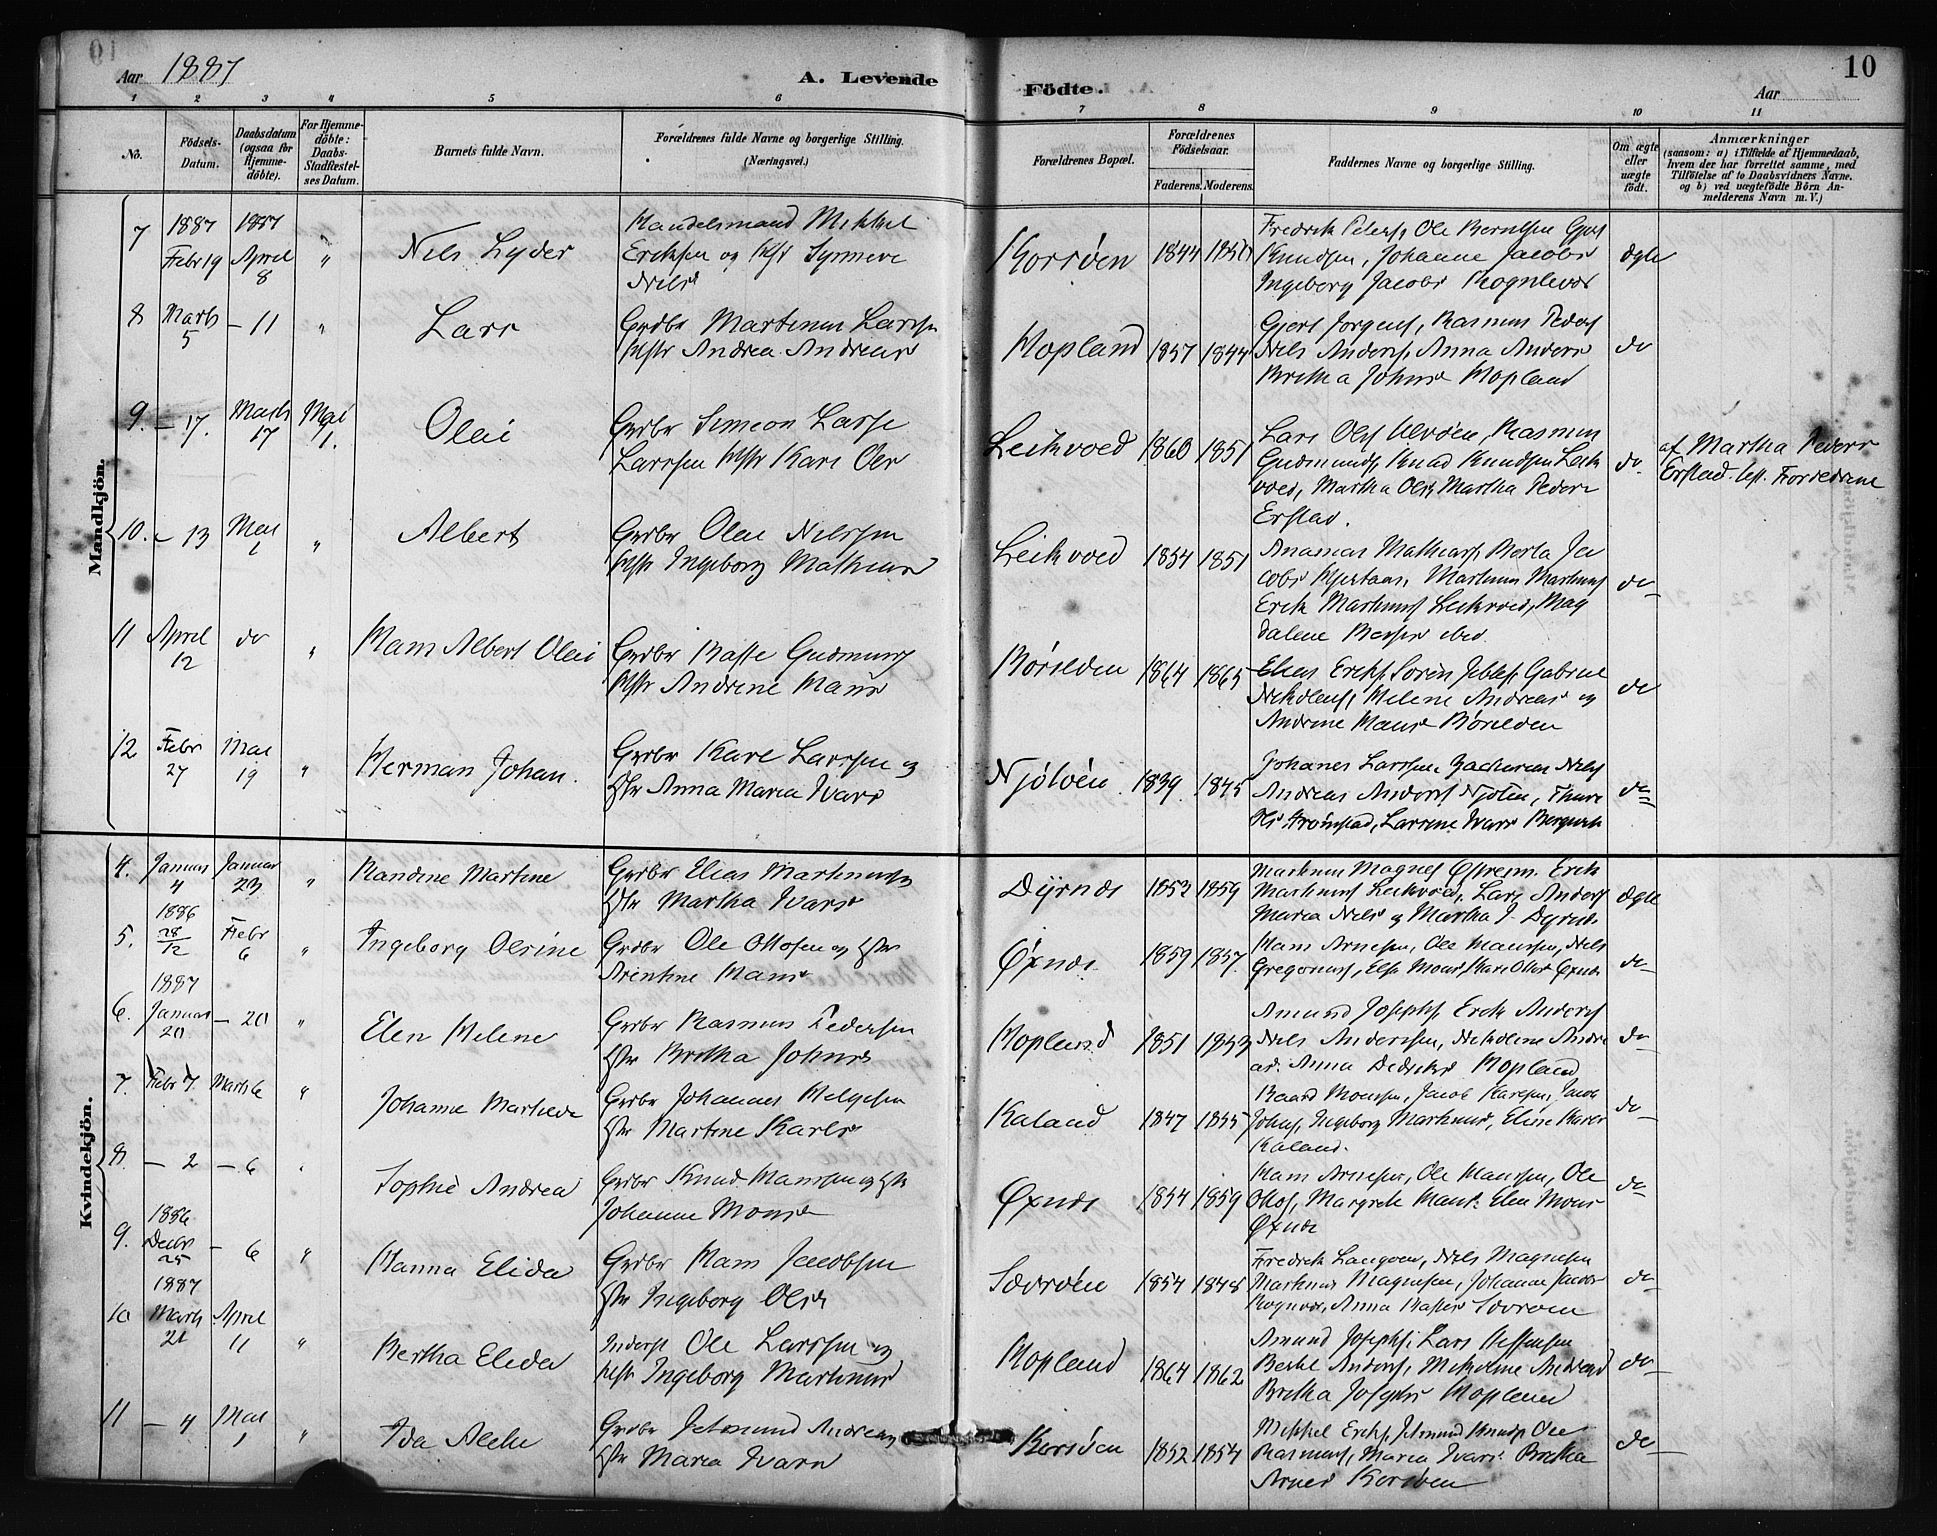 Aar 1887
A. Levende
Födte.
Aar
10
1 2 3 4 5 6 7 8 9 10 11
No.
Födsels-
Datum.
Daabsdatum
(ogsaa for
Hjemme-
döbte).
For Hjemme-
döbte:
Daabs-
Stadfæstel-
ses Datum.
Barnets fulde Navn.
Forældrenes fulde Navne og borgerlige Stilling.
(Næringsvei.)
Forældrenes Bopæl.
Forældrenes
Födselsaar.
Faderens. Moderens.
Faddernes Navne og borgerlige Stilling.
Om ægte
eller
uægte
födt.
Anmærkninger
(saasom: a) i Tilfælde af Hjemmedaab,
hvem der har forrettet samme, med
Tilföielse af to Daabsvidners Navne.
og b) ved uægtefödte Börn An-
melderens Navn m. V.)
Mandkjön.
7
1887
Febr 19
1887
April
8
"
Nils Lyder
Handelsmand Mikkel
Eriksen og
Korsöen
1844
Knudsen, Johanne Jacobs
Ingeborg Jacobs
ægte
8
Marts
5
– 11
"
Lars
Grdbr Martinus Larssen
Hstr Andrea Andreasd
Hopland
1857
1844
Gjert Jorgens, Rasmus Peders
Nils Anders, Anna Anders
Bretha Johnsd Hopland
do
9.
– 17.
Marts
17
Mai
1.
Olai
Grdbr Simeon Lasse
Larssen Hstr Kari Olsd
Leikvoed
1860
1851
Lars Ols Ulvöen, Rasmus
Gudmunds, Knud Knudsen Leik
voed, Martha Ols, Martha Peders
Erstad.
do
af Martha Peders
Erstad. best. Forældrene
10.
– 13
Mai
1
"
Albert
Grdbr Olai Nilssen
Hstr Ingeborg Mathiasd
Leikvoed
1854
1851
Ananias Mathias, Berta Ja
cobs
Erik Martinus Leikvoed, Mag
dalene
do
11
April
12
do
"
Hans Albert Olai
Grdbr Basse Gudmunds
Hstr Andrine Hansd
Börilden
1864
1865
Elias Eriks, Sören
Nikolaus, Helene Andreas og
Andrine Hansd Börilden
do
12
Febr
27
Mai
19
"
Herman Johan.
Grdbr Kare Larssen og
Hstr Anna Maria Ivars
Njöloen.
1839
1845
Johanes Larssen, Zacharias Niels
Andreas Anders Njöten, Thure
do
Kvindekjön.
4.
Januar
4
Januar
23
"
Randine Martine
Grdbr Elias Martinus og
Hstr Martha Ivarsd
Dyrnes
1852
1859
Martinus Magnes Öfreim. Erik
Martinus Leikvoed, Lars Anders
Maria Nilsd og Martha I. Dyrnes
ægte
5.
1886
28/12
Febr
6
"
Ingeborg Olsine
Grdbr Ole Ottosen og Hstr
Arentine Hansd
Öxnes
1859
1857
Hans Arnesen, Ole Hanssen, Nils
Gregorius, Elsa Mons, Kari Olsd Öxnes
do
6.
1887
Januar
20
– 20
"
Elen Helene
Grdbr Rasmus Pedersen
Hstr Bretha Johnsd
Hopland
1851
1853
Amund Josephs, Erik Anders
Nils Anderssen, Nikoline Andre
as. Anna Dedriks Hopland
do
7.
Febr 7.
Marts 6
"
Johanne Marthea
Grdbr Johannes Helgesen
Hstr Martine Karls
Kaland
1847
1855
Baard Monsen, Jacob Karesen, Jacob
Johns, Ingeborg Martinus, Eline Kares
Kaland.
do
8
– 2
– 6
Sophie Andrea
Grdbr Knud Hanssen og Hstr
Johanne Monsd
Öxnes
1854
1859
Hans Arnesen, Ole Hanssen, Ole
Ottos, Margrete Hans. Elen Mons
Öxnes
do
9.
1886
Decbr
25
– 6
"
Hanna Elida
Grdbr Hans Jacobsen
Hstr Ingeborg Olsd
Sævröen
1854
1848
Fredrik Langoen, Nils Magnesen
Martinus Magnesen, Johanne Jacobs
Rognes, Anna Basses Sævroen
do
10
1887
Marts
21
April
11
"
Bertha Elida
Inderst Ole Larssen og
Hstr Ingeborg Martinusd
Hopland
1864
1862
Amund Josephs, Lars
Bertel Anders, Nikoline Andreas
Bretha Josephs Hopland
do
11
– 4
Mai
1
"
Ida Alette
Grdbr Jetmund Andreas og
Hstr Maria Ivars
Korsöen
1852
1854
Mikkel Eriks, Jetmund Knuds, Ole
Rasmus, Maria Ivars. Bretha
Arnes Korsöen
do